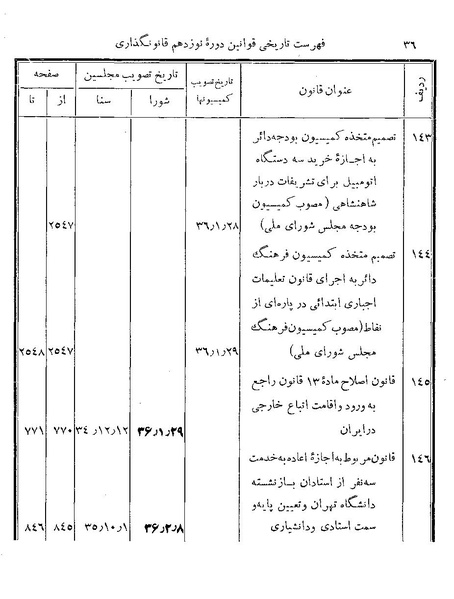 ۳۶ فهرست تاریخی قوانین دورهٔ نوزدهم قانونگذاری
ردیف عنوان قانون تاریخ تصویب کمیسیونها تاریخ تصویب مجلسین صفحه
شورا سنا از تا
۱٤۳ تصمیم متخذه کمیسیون بودجه دائر
به اجازهٔ خرید سه دستگاه
اتومبیل برای تشریفات دربار
شاهنشاهی (مصوب کمیسیون
بودجه مجلس شورای ملی) ۳۶٫۱٫۲۸ ۲۵٤۷
۱٤٤ تصمیم متخذه کمیسیون فرهنگ
دائر به اجرای قانون تعلیمات
اجباری ابتدائی در پاره‌ای از
نقاط (مصوب کمیسیون فرهنگ
مجلس شورای ملی) ۳۶٫۱٫۲۹ ۲۵٤۷ ۲۵٤۸
۱٤۵ قانون اصلاح مادهٔ ۱۳ قانون راجع
به ورود و اقامت اتباع خارجی
در ایران ۳۶٫۱٫۲۹ ۳٤٫۱۲٫۱۲ ۷۷۰ ۷۷۱
۱٤۶ قانون مربوط به اجازهٔ اعاده به خدمت
سه نفر از استادان بازنشسته
دانشگاه تهران و تعیین پایه و
سمت استادی و دانشیاری ۳۶٫۲٫۸ ۳۵٫۱۰٫۱ ۸٤۵ ۸٤۶